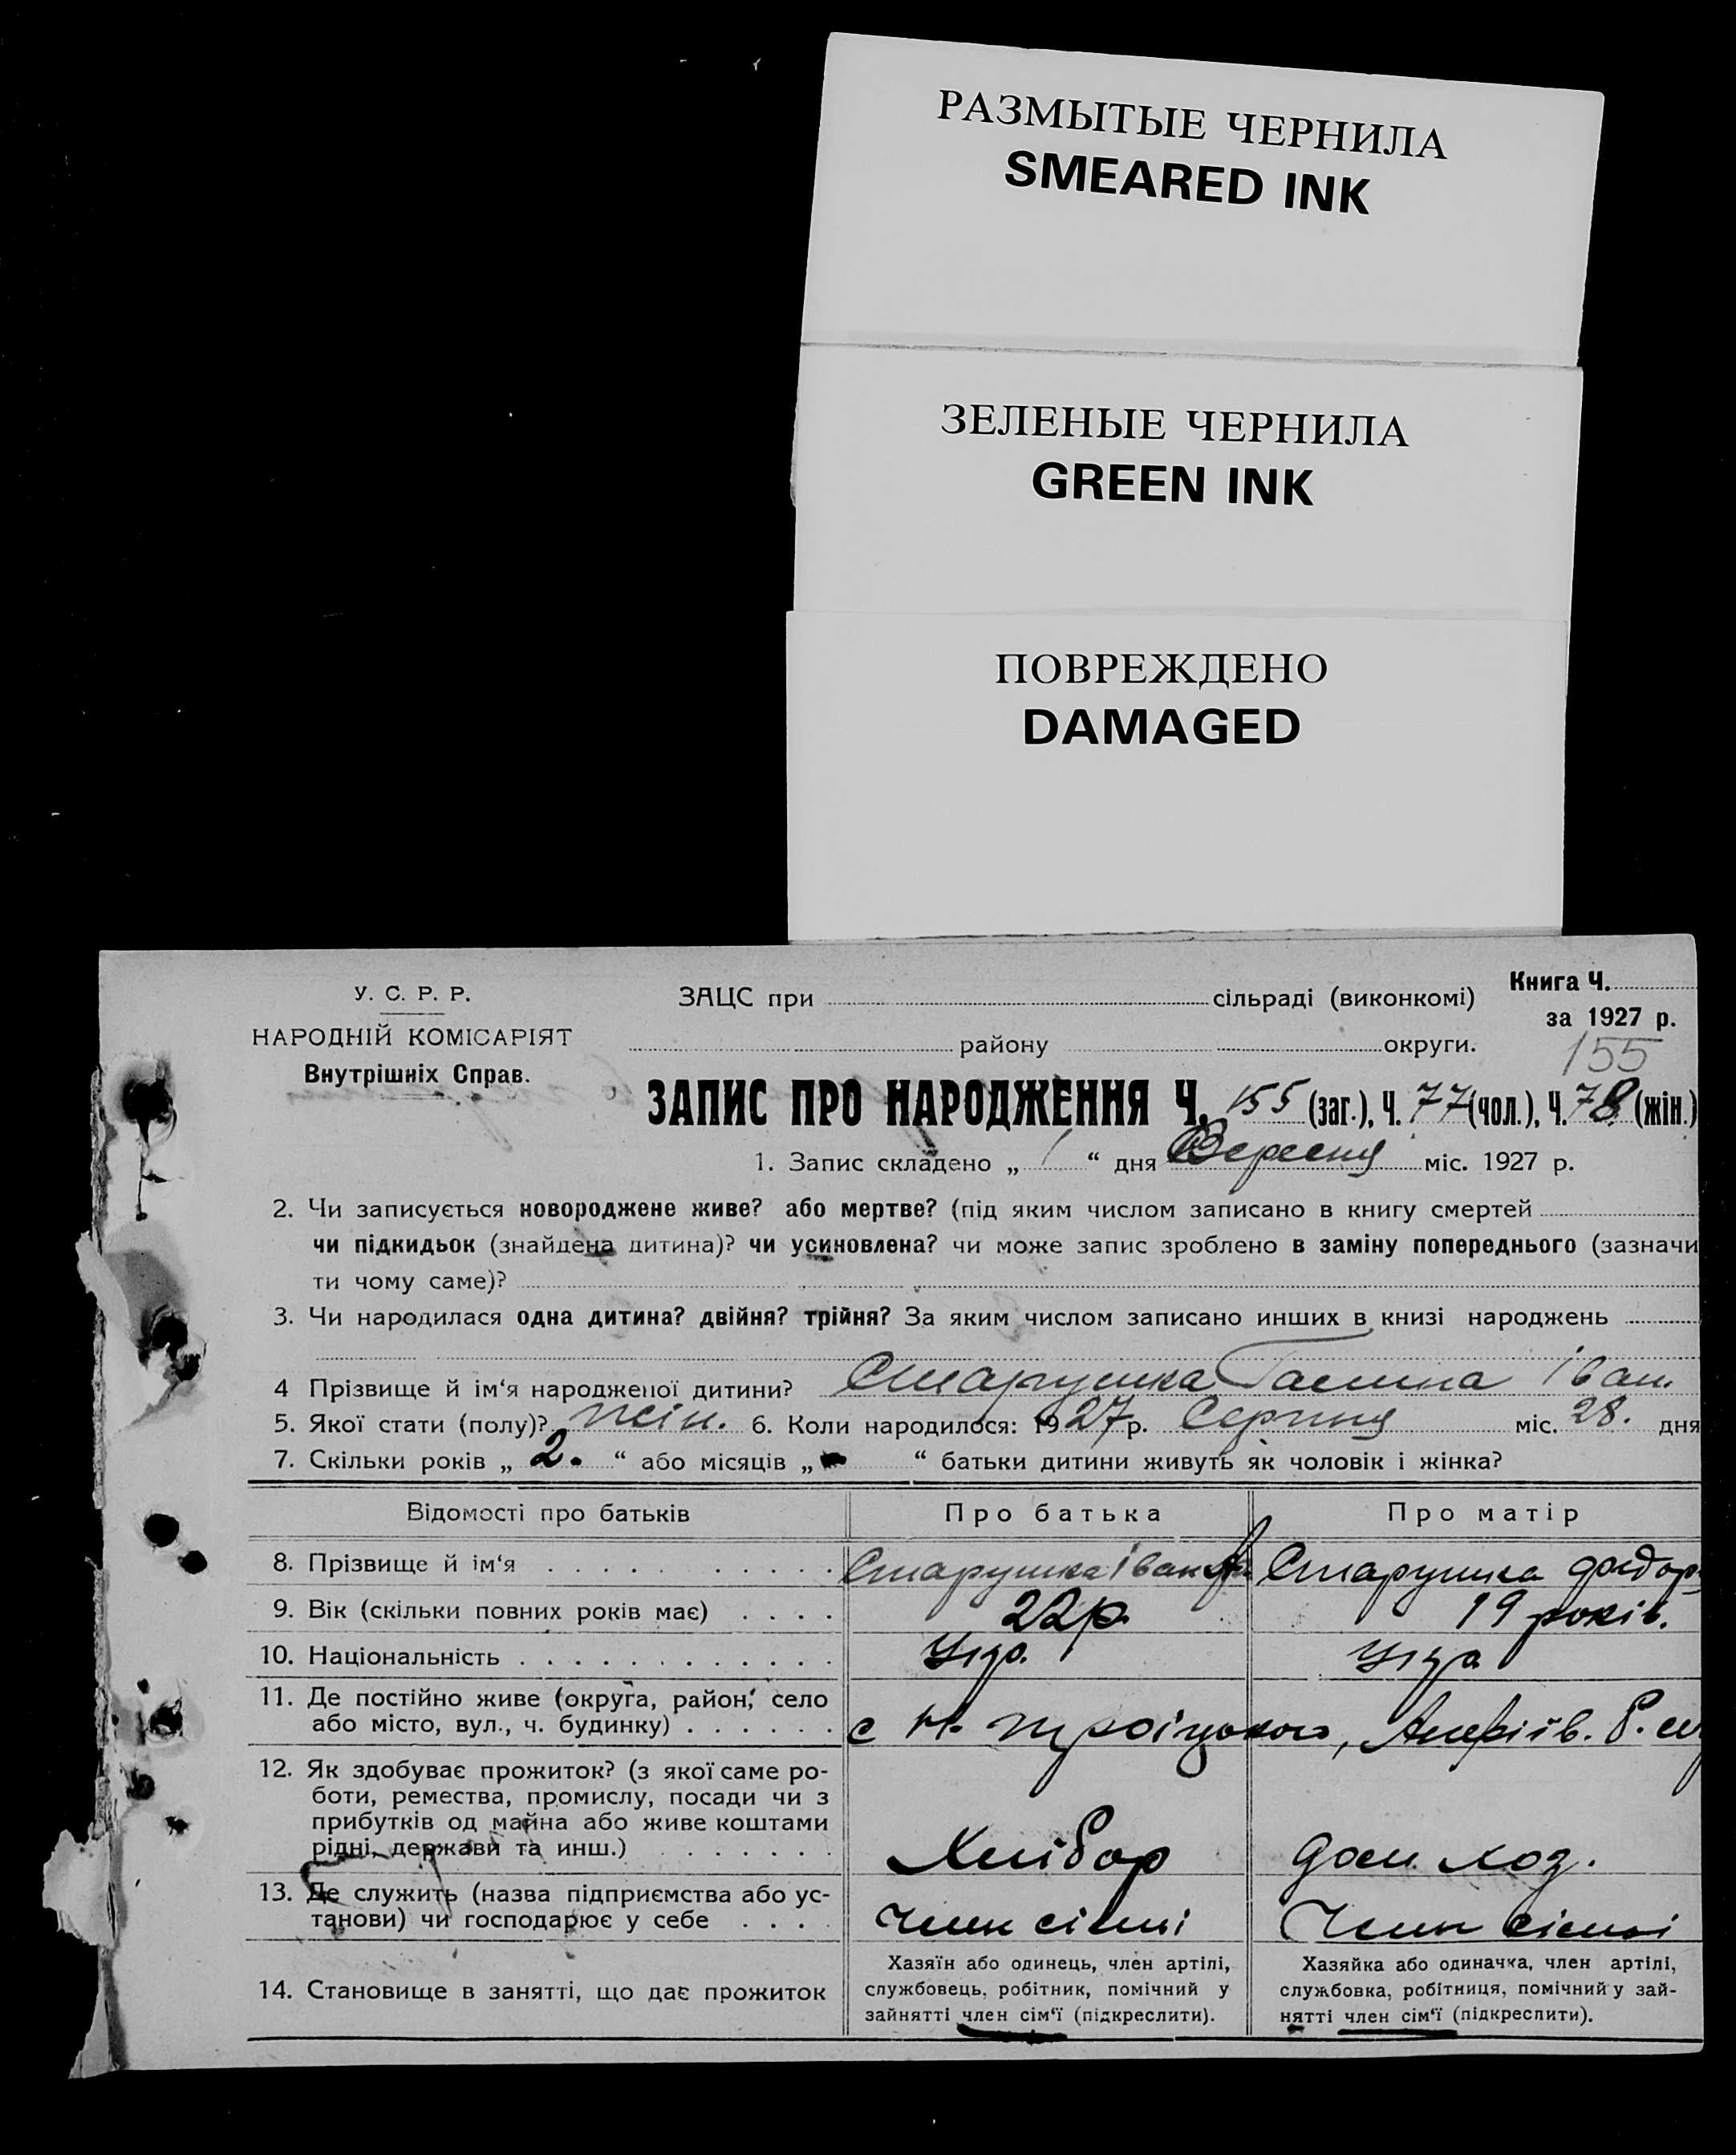 РАЗМЫТЫЕ ЧЕРНИЛА
SMEARED INK
ЗЕЛЕНЫЕ ЧЕРНИЛА
GREEN INK
ПОВРЕЖДЕНО
DAMAGED
У. С. Р. Р.
НАРОДНІЙ КОМІСАРІЯТ
Внутрішніх Справ.
ЗАЦС при сільраді (виконкомі)
району округи.
Книга Ч.
за 1927 р.
155
ЗАПИС ПРО НАРОДЖЕННЯ Ч. 155 (заг.), Ч. 77 (чол.), Ч. 78 (жін.)
1. Запис складено „ 1 “ дня Вересня міс. 1927 р.
2. Чи записується новороджене живе? або мертве? (під яким числом записано в книгу смертей
чи підкидьок (знайдена дитина)? чи усиновлена? чи може запис зроблено в заміну попереднього (зазначи
ти чому саме)?
3. Чи народилася одна дитина? двійня? трійня? За яким числом записано инших в книзі народжень
4 Прізвище й ім‘я народженої дитини? Старушка Галина Іван.
5. Якої стати (полу)? жін. 6. Коли народилося: 1927 р. Серпня міс. 28. дня
7. Скільки років „ 2. “ або місяців „ “ батьки дитини живуть як чоловік і жінка?
Відомості про батьків Про батька Про матір
8. Прізвище й ім‘я Старушка Іван Старушка
9. Вік (скільки повних років має) 22р. 19 років.
10. Національність Укр. Укр.
11. Де постійно живе (округа, район, село
або місто, вул., ч. будинку) с Н. Троіцького,
12. Як здобуває прожиток? (з якої саме ро-
боти, ремества, промислу, посади чи з
прибутків од майна або живе коштами
рідні, держави та инш.) Хлібор дом. хоз.
13. Де служить (назва підприємства або ус-
танови) чи господарює у себе Член сімні Член сімні
14. Становище в занятті, що дає прожиток
Хазяїн або одинець, член артілі,
службовець, робітник, помічний у
зайнятті член сім‘ї (підкреслити).
Хазяйка або одиначка, член артілі,
службовка, робітниця, помічний у зай-
нятті член сім‘ї (підкреслити).